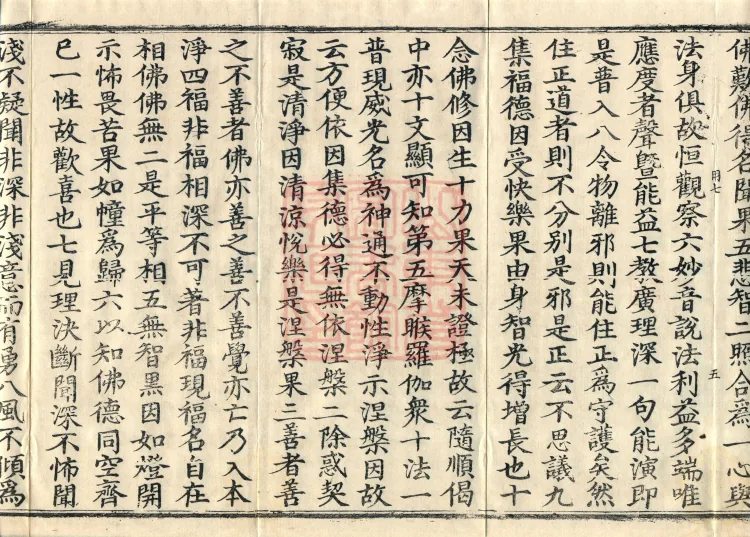 佛歎佛德名聞果五悲智二照合為一心與
法身俱故恒觀察六妙音說法利益多端唯
應度者聲暨能益七教廣理深一句能演即
是普入八令物離邪則能住正為守護矣然
住正道者則不分別是邪是正云不思議九
集福德因受快樂果由身智光得增長也十
用七
五
念佛修因生十力果天未證極故云隨順偈
中亦十文顯可知第五摩睺羅伽衆十法一
普現威光名為神通不動性淨示涅槃因故
云方便依因集德必得無依涅槃二除惑契
寂是清淨因清涼悅樂是涅槃果三善者善
之不善者佛亦善之善不善覺亦亡乃入本
淨四福非福相深不可著非福現福名自在
相佛佛無二是平等相五無智黑因如燈開
示怖畏苦果如幢為歸六以知佛德同空齊
已一性故歡喜也七見理決斷聞深不怖聞
淺不疑聞非深非淺意而有勇八風不傾為